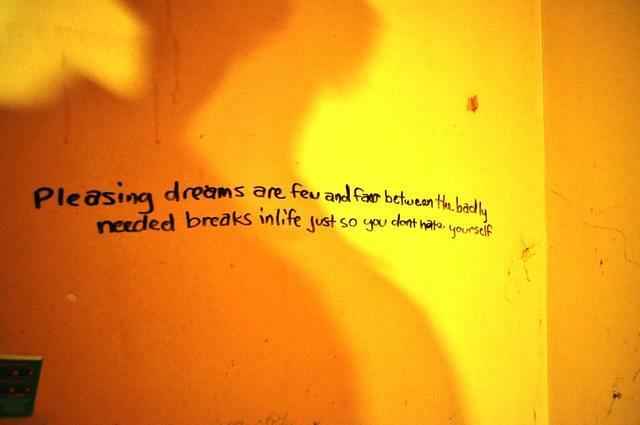 Pleasing dreams are few and far between the badly
needed breaks in life just so you dont hate yourself